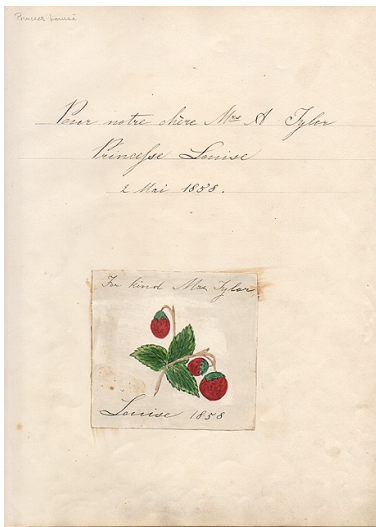 Princess Louise
Pour notre chère Mrs A Tyler
Princesse Louise
2 Mai 1858.
For kind Mrs Tyler
Louise 1858